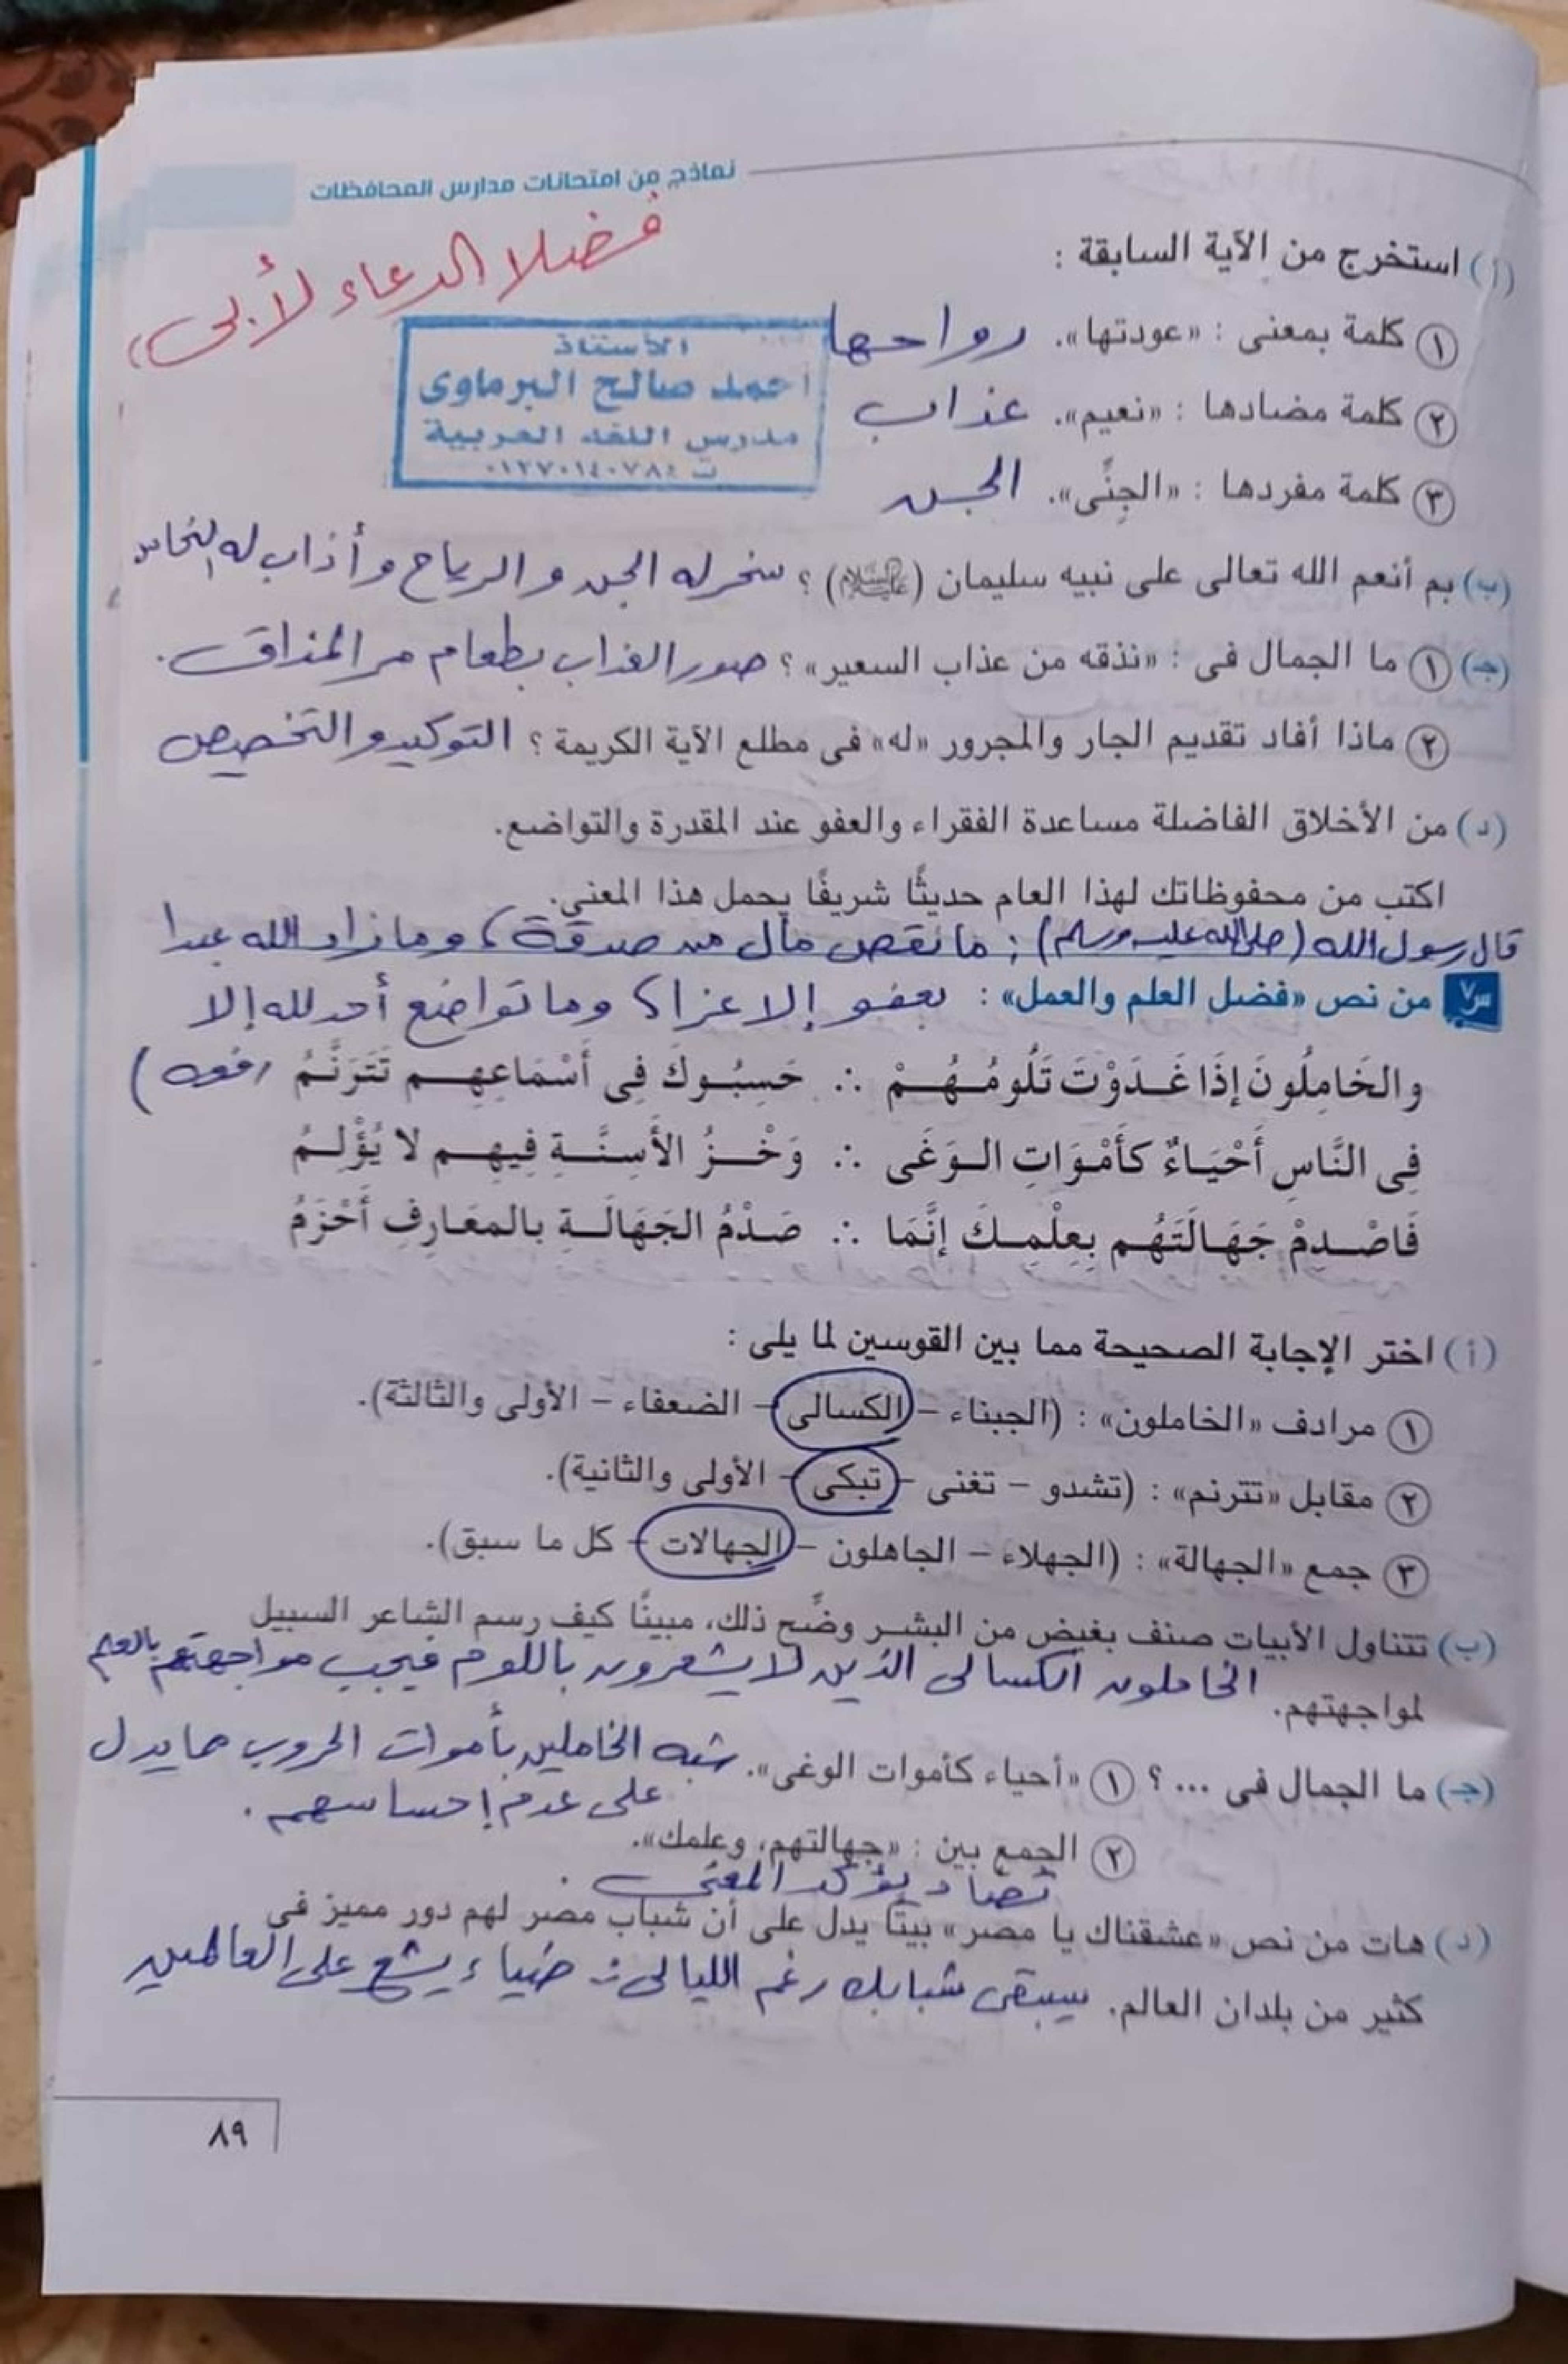 نماذج من امتحانات مدارس المحافظات
فضلا الدعاء لأبى
(أ) استخرج من الآية السابقة :
١ كلمة بمعنى : «عودتها». رواحها
الأستاذ
أحمد صالح البرماوى
مدرس اللغة العربية
ت ٠١٢٧٠١٤٠٧٨٤
٢ كلمة مضادها : «نعيم». عذاب
٣ كلمة مفردها : «الجِنِّى». الجن
(ب) بم أنعم الله تعالى على نبيه سليمان (عليه السلام) ؟ سخر له الجن والرياح وأذاب له النحاس
(جـ) ١ ما الجمال فى : «نذقه من عذاب السعير» ؟ صور العذاب بطعام مر المذاق.
٢ ماذا أفاد تقديم الجار والمجرور «له» فى مطلع الآية الكريمة ؟ التوكيد والتخصيص
(د) من الأخلاق الفاضلة مساعدة الفقراء والعفو عند المقدرة والتواضع.
اكتب من محفوظاتك لهذا العام حديثًا شريفًا يحمل هذا المعنى.
قال رسول الله (صلى الله عليه وسلم) : ما نقص مال من صدقة، وما زاد الله عبدا
س٧ من نص «فضل العلم والعمل» : بعفو إلا عزا، وما تواضع أحد لله إلا
والخَامِلُونَ إذَا غَـدَوْتَ تَلُومُـهُـمْ ∴ حَسِبُـوكَ فِى أَسْمَاعِهِـم تَتَرَنَّـمُ رفعه )
فِى النَّاسِ أَحْيَـاءٌ كَأَمْـوَاتِ الـوَغَى ∴ وَخْـزُ الأَسِنَّـةِ فِيهِـم لا يُؤْلِـمُ
فَاصْـدِمْ جَهَـالَتَهُـم بِعِلْمِـكَ إنَّمَا ∴ صَـدْمُ الجَهَالَـةِ بالمعَـارِفِ أَحْزَمُ
(أ) اختر الإجابة الصحيحة مما بين القوسين لما يلى :
١ مرادف «الخاملون» : (الجبناء – الكسالى – الضعفاء – الأولى والثالثة).
٢ مقابل «تترنم» : (تشدو – تغنى – تبكى – الأولى والثانية).
٣ جمع «الجهالة» : (الجهلاء – الجاهلون – الجهالات – كل ما سبق).
(ب) تتناول الأبيات صنف بغيض من البشـر وضِّح ذلك، مبينًا كيف رسم الشاعر السبيل
لمواجهتهم. الخاملون الكسالى الذين لا يشعرون باللوم فيجب مواجهتهم بالعلم
(جـ) ما الجمال فى ... ؟ ١ «أحياء كأموات الوغى». شبه الخاملين بأموات الحروب مما يدل
على عدم إحساسهم .
٢ الجمع بين : «جهالتهم، وعلمك».
تضاد يؤكد المعنى .
(د) هات من نص «عشقناك يا مصر» بيتًا يدل على أن شباب مصر لهم دور مميز فى
كثير من بلدان العالم. سيبقى شبابك رغم الليالى ∴ ضياء يشع على العالمين
٨٩